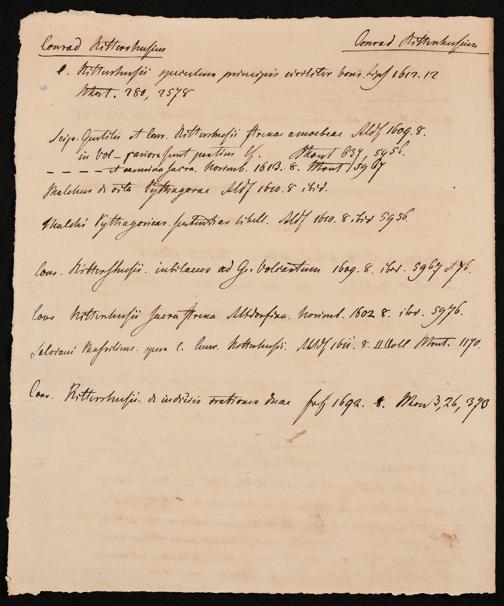 Conrad Rittershusius Conrad Rittershusius
C. Rittershusii speculum principis civiliter boni Lips 1612. 12
Mont. 280, 2578
Scip. Gentilis et Conr. Rittershusii strena amoebae Altdf 1609. 8.
in Vol Mont 637, 5956.
carmina sacra. Norimb. 1613. 8. Mont 5967
Malchus de vita Pythagorae Altdf 1610. 8 ibid.
Malchi Pythagoricar. sententiar libell. Altdf 1610. 8 ibid 5956.
Con. Rittershusii. iubilaeus ad G. Volcartum 1609. 8. ibd. 5967 76.
Conr Rittershusii sacra strena Altdorfina. Norimb. 1602 8. ibd. 5976.
Salviani Massiliens. opera c. Conr. Rittershusii. Altdf 1611. 8. II Voll Mont. 1170.
Con. Rittershusii. de indiciis orationes duae 1692. 8. Mon 3, 26, 373